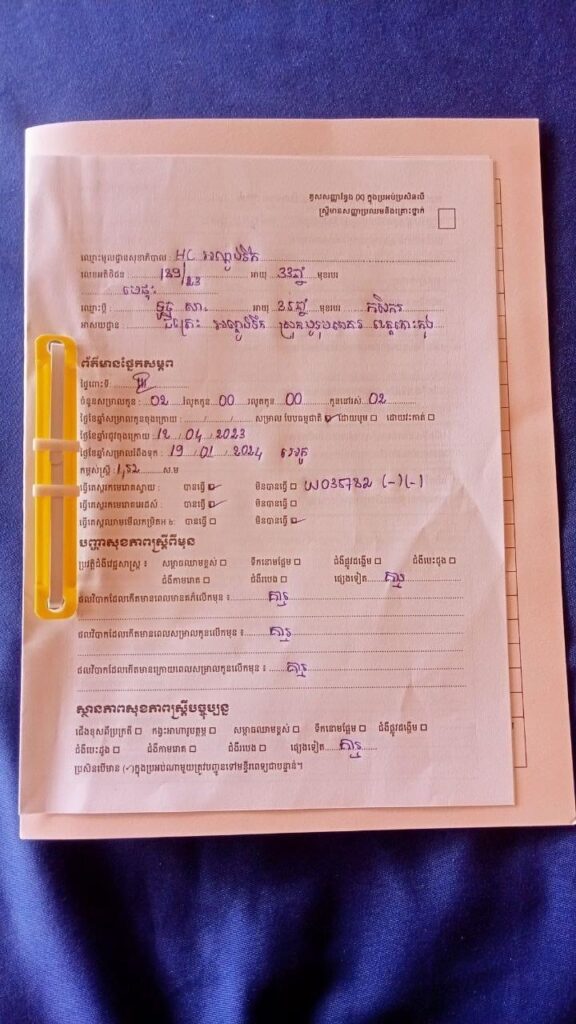 គូសសញ្ញាខ្វែង (X) ក្នុងប្រអប់ប្រសិនបើ
ស្ត្រីមានសញ្ញាប្រឈមនឹងគ្រោះថ្នាក់
ឈ្មោះមូលដ្ឋានសុខាភិបាល : HC អណ្តូងទឹក
លេខអតិថិជន : 129/23 អាយុ 33ឆ្នាំ មុខរបរ
មេផ្ទះ
ឈ្មោះប្តី : អាយុ 35ឆ្នាំ មុខរបរ កសិករ
អាសយដ្ឋាន : អណ្តូងទឹក ស្រុកបូទុមសាគរ ខេត្តកោះកុង
ព័ត៌មានផ្នែកសម្ភព
ផ្ទៃពោះទី :
ចំនួនសម្រាលកូន : 02 រលូតកូន 00 រលូតកូន 00 កូននៅរស់ 02
ថ្ងៃខែឆ្នាំសម្រាលកូនចុងក្រោយ : / / សម្រាល បែបធម្មជាតិ ☑ ដោយបូម ☐ ដោយវះកាត់ ☐
ថ្ងៃខែឆ្នាំរដូវចុងក្រោយ 12 / 04 / 2023
ថ្ងៃខែឆ្នាំសម្រាលរំពឹងទុក : 19 / 01 / 2024 អេកូ
កម្ពស់ស្ត្រី : 1,52 ស.ម
ធ្វើតេស្តរកមេរោគស្វាយ : បានធ្វើ ☑ មិនបានធ្វើ ☐ W035782 (-)(-)
ធ្វើតេស្តរកមេរោគអេដស៍ : បានធ្វើ ☑ មិនបានធ្វើ ☐
ធ្វើតេស្តឈាមមើលកម្រិតអ ប៊ : បានធ្វើ ☐ មិនបានធ្វើ ☑
បញ្ហាសុខភាពស្ត្រីពីមុន
ប្រវត្តិជំងឺវេជ្ជសាស្ត្រ ៖ សម្ពាធឈាមខ្ពស់ ☐ ទឹកនោមផ្អែម ☐ ជំងឺផ្លូវដង្ហើម ☐ ជំងឺបេះដូង ☐
ជំងឺកាមរោគ ☐ ជំងឺរបេង ☐ ផ្សេងទៀត គ្មាន
ផលវិបាកដែលកើតមានពេលមានគភ៌លើកមុន ៖ គ្មាន
ផលវិបាកដែលកើតមានពេលសម្រាលកូនលើកមុន : គ្មាន
ផលវិបាកដែលកើតមានក្រោយពេលសម្រាលកូនលើកមុន ៖ គ្មាន
ស្ថានភាពសុខភាពស្ត្រីបច្ចុប្បន្ន
ជើងខុសពីប្រក្រតី ☐ កង្វះអាហារូបត្ថម្ភ ☐ សម្ពាធឈាមខ្ពស់ ☐ ទឹកនោមផ្អែម ☐ ជំងឺផ្លូវដង្ហើម ☐
ជំងឺបេះដូង ☐ ជំងឺកាមរោគ ☐ ជំងឺរបេង ☐ ផ្សេងទៀត គ្មាន
ប្រសិនបើមាន (✓)ក្នុងប្រអប់ណាមួយត្រូវបញ្ជូនទៅមន្ទីរពេទ្យជាបន្ទាន់។